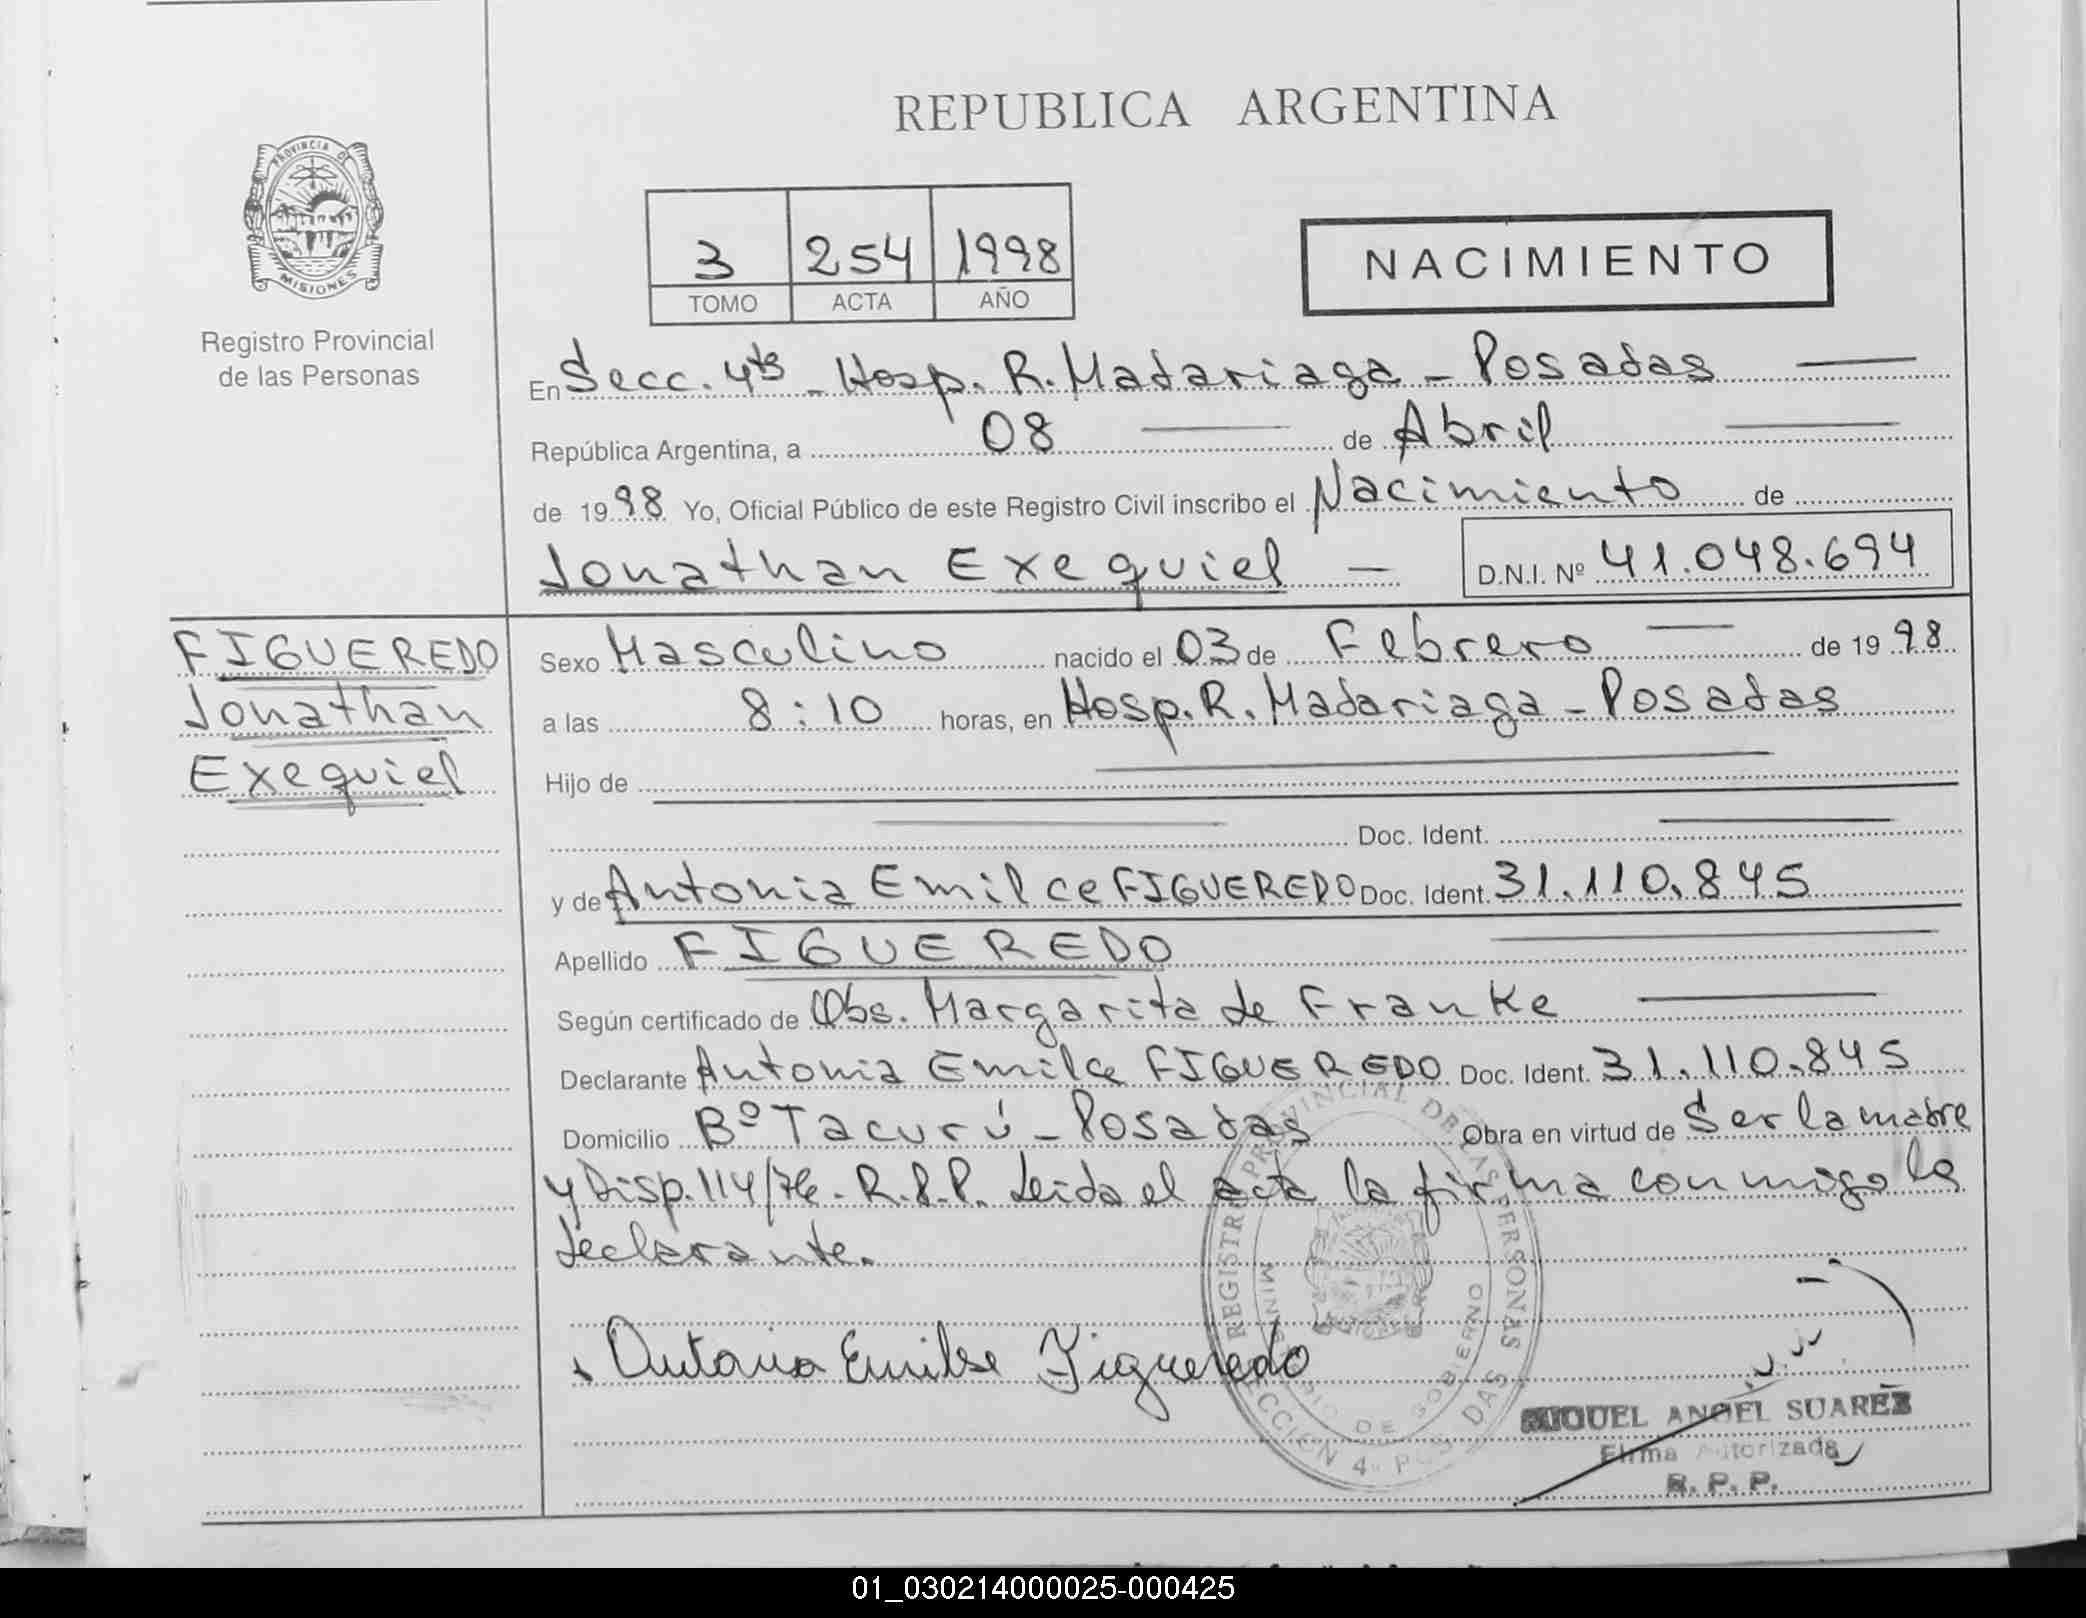 REPUBLICA ARGENTINA
PROVINCIA DE
MISIONES
Registro Provincial
de las Personas
3 254 1998
TOMO ACTA AÑO
NACIMIENTO
En Secc. 4ta - Hosp. R. Madariaga - Posadas
República Argentina, a 08 de Abril
de 1998 Yo, Oficial Público de este Registro Civil inscribo el Nacimiento de
Jonathan Exequiel - D.N.I. Nº 41.048.694
FIGUEREDO
Jonathan
Exequiel
Sexo Masculino nacido el 03 de Febrero de 1998
a las 8:10 horas, en Hosp. R. Madariaga - Posadas
Hijo de
Doc. Ident.
y de Antonia Emilce FIGUEREDO Doc. Ident. 31.110.845
Apellido FIGUEREDO
Según certificado de Obs. Margarita de Franke
Declarante Antonia Emilce FIGUEREDO Doc. Ident. 31.110.845
Domicilio Bº Tacurú - Posadas Obra en virtud de Ser la madre
y Disp. 114/76 - R.P.P. Leida el acta la firma conmigo la
declarante.
Antonia Emilse Figueredo
REGISTRO PROVINCIAL DE LAS PERSONAS
MINISTERIO DE GOBIERNO
SECCION 4a POSADAS
MIGUEL ANGEL SUAREZ
Firma Autorizada
R. P. P.
01_030214000025-000425